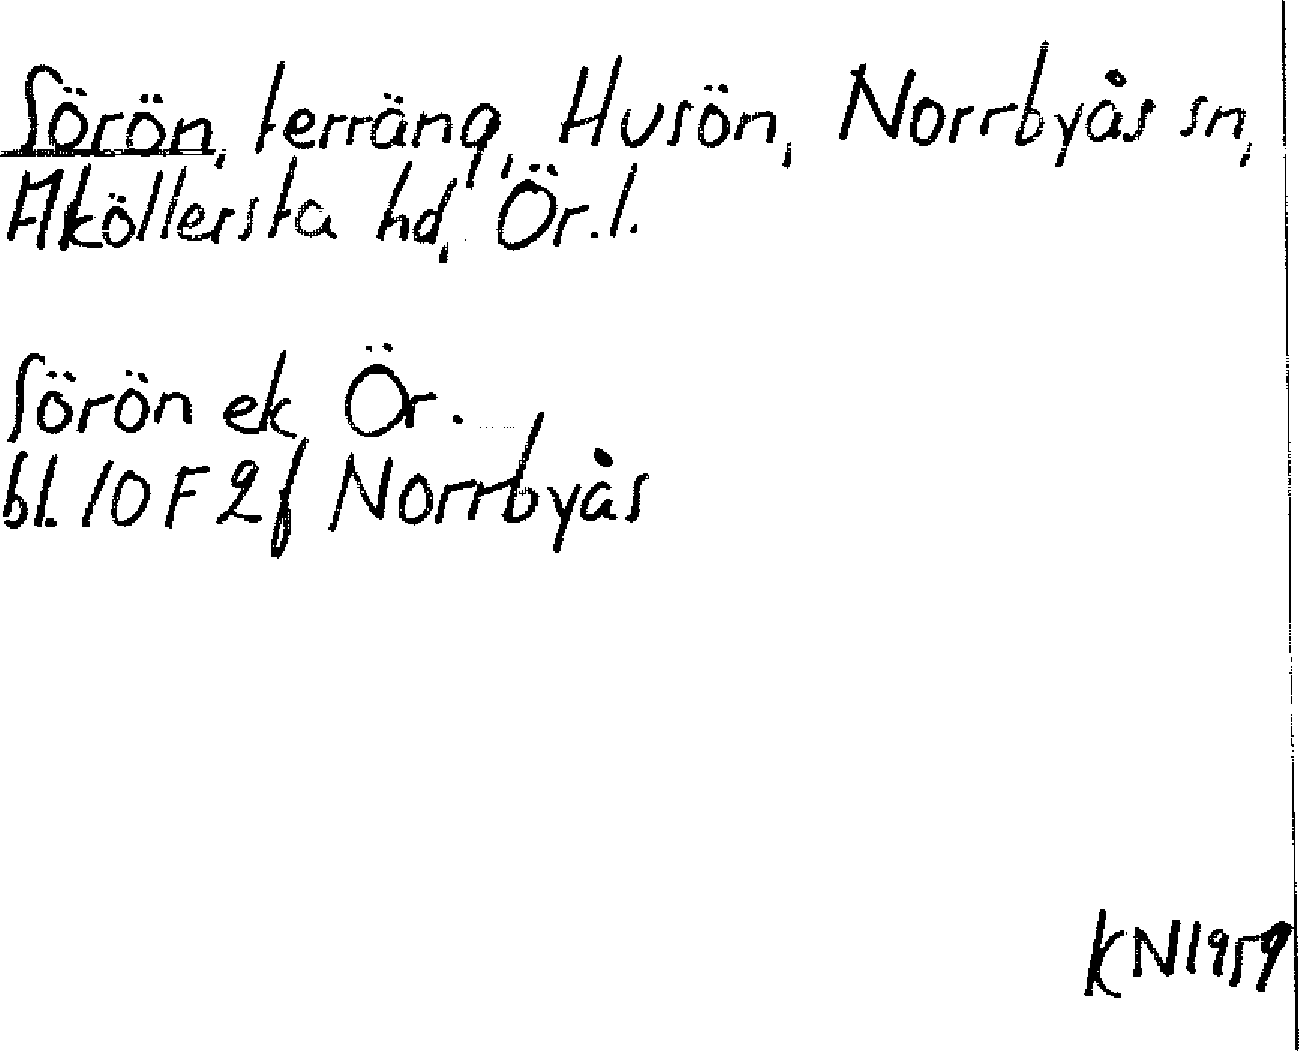 Sörön, terräng, Husön, Norrbyås sn,
Asköllersta hd, Ör.l.
Sörön ek Ör.
bl. 10 F 2 f Norrbyås
KN 1959